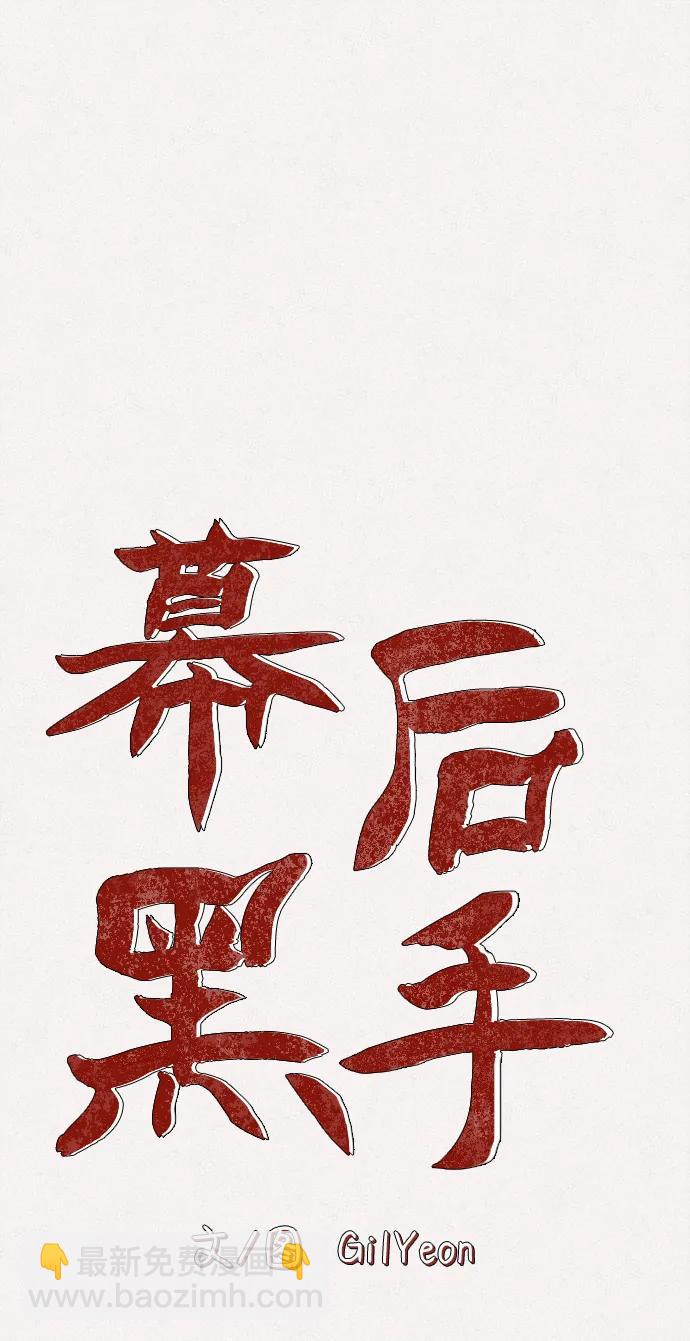 幕后
黑手
文/图 GilYeon
👇最新免费漫画👇
www.baozimh.com